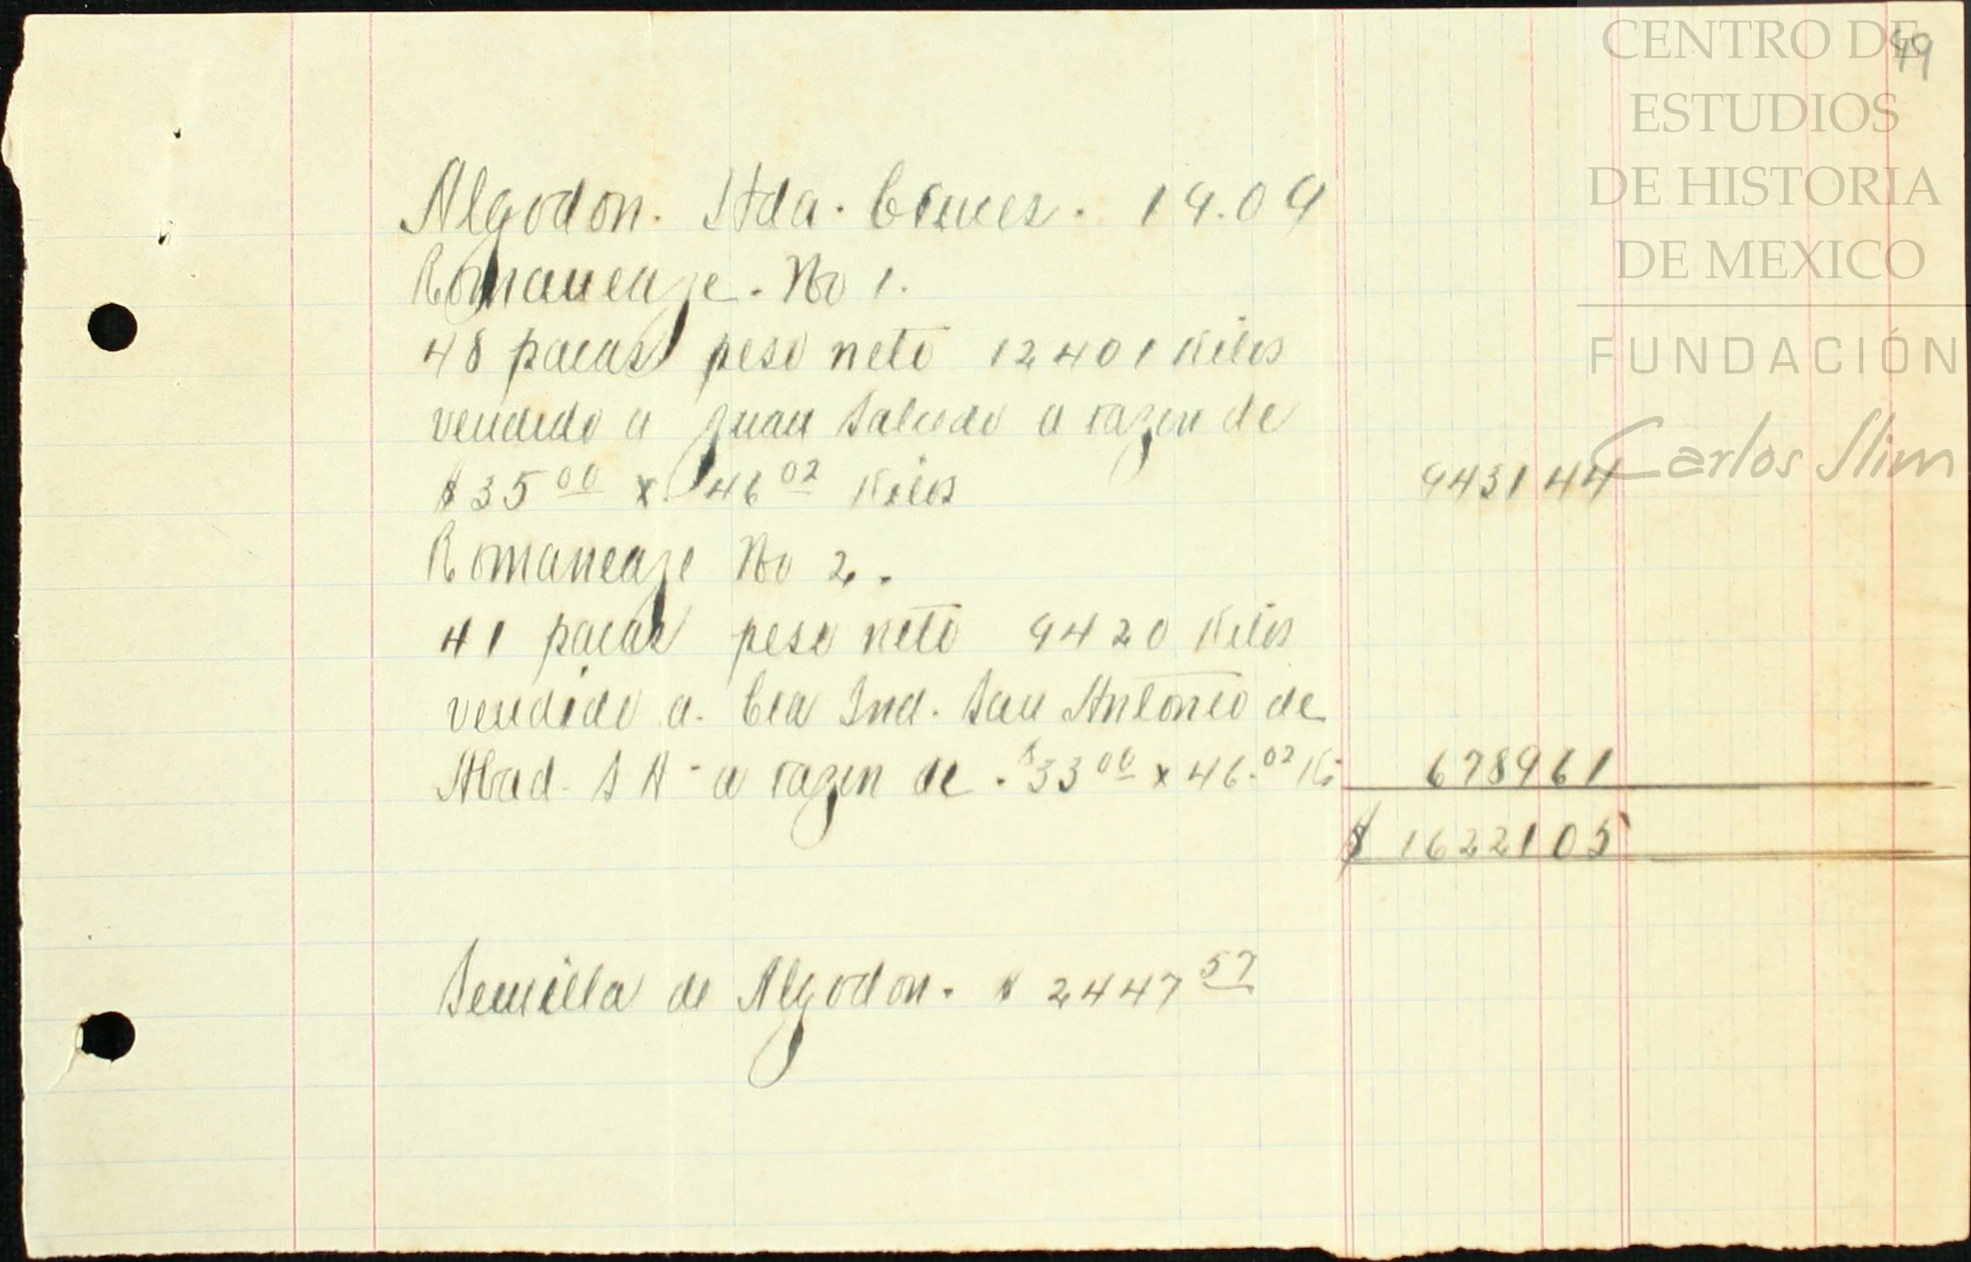 49
CENTRO DE
ESTUDIOS
DE HISTORIA
DE MEXICO
FUNDACIÓN
Carlos Slim
Algodon. Hda. Cruces. 19.09
Romaneaje. No 1.
48 pacas peso neto 12401 Kilos
vendido a Juan Salcedo a razon de
$35 00 x 46 02 Kilos 9431 44
Romaneaje No 2.
41 pacas peso neto 9420 Kilos
vendido a. Cia Ind. San Antonio de
Abad. S A - a razon de. $33 00 x 46. 02 K. 6789 61
$ 16221 05
Semilla de Algodon. $ 2447 57